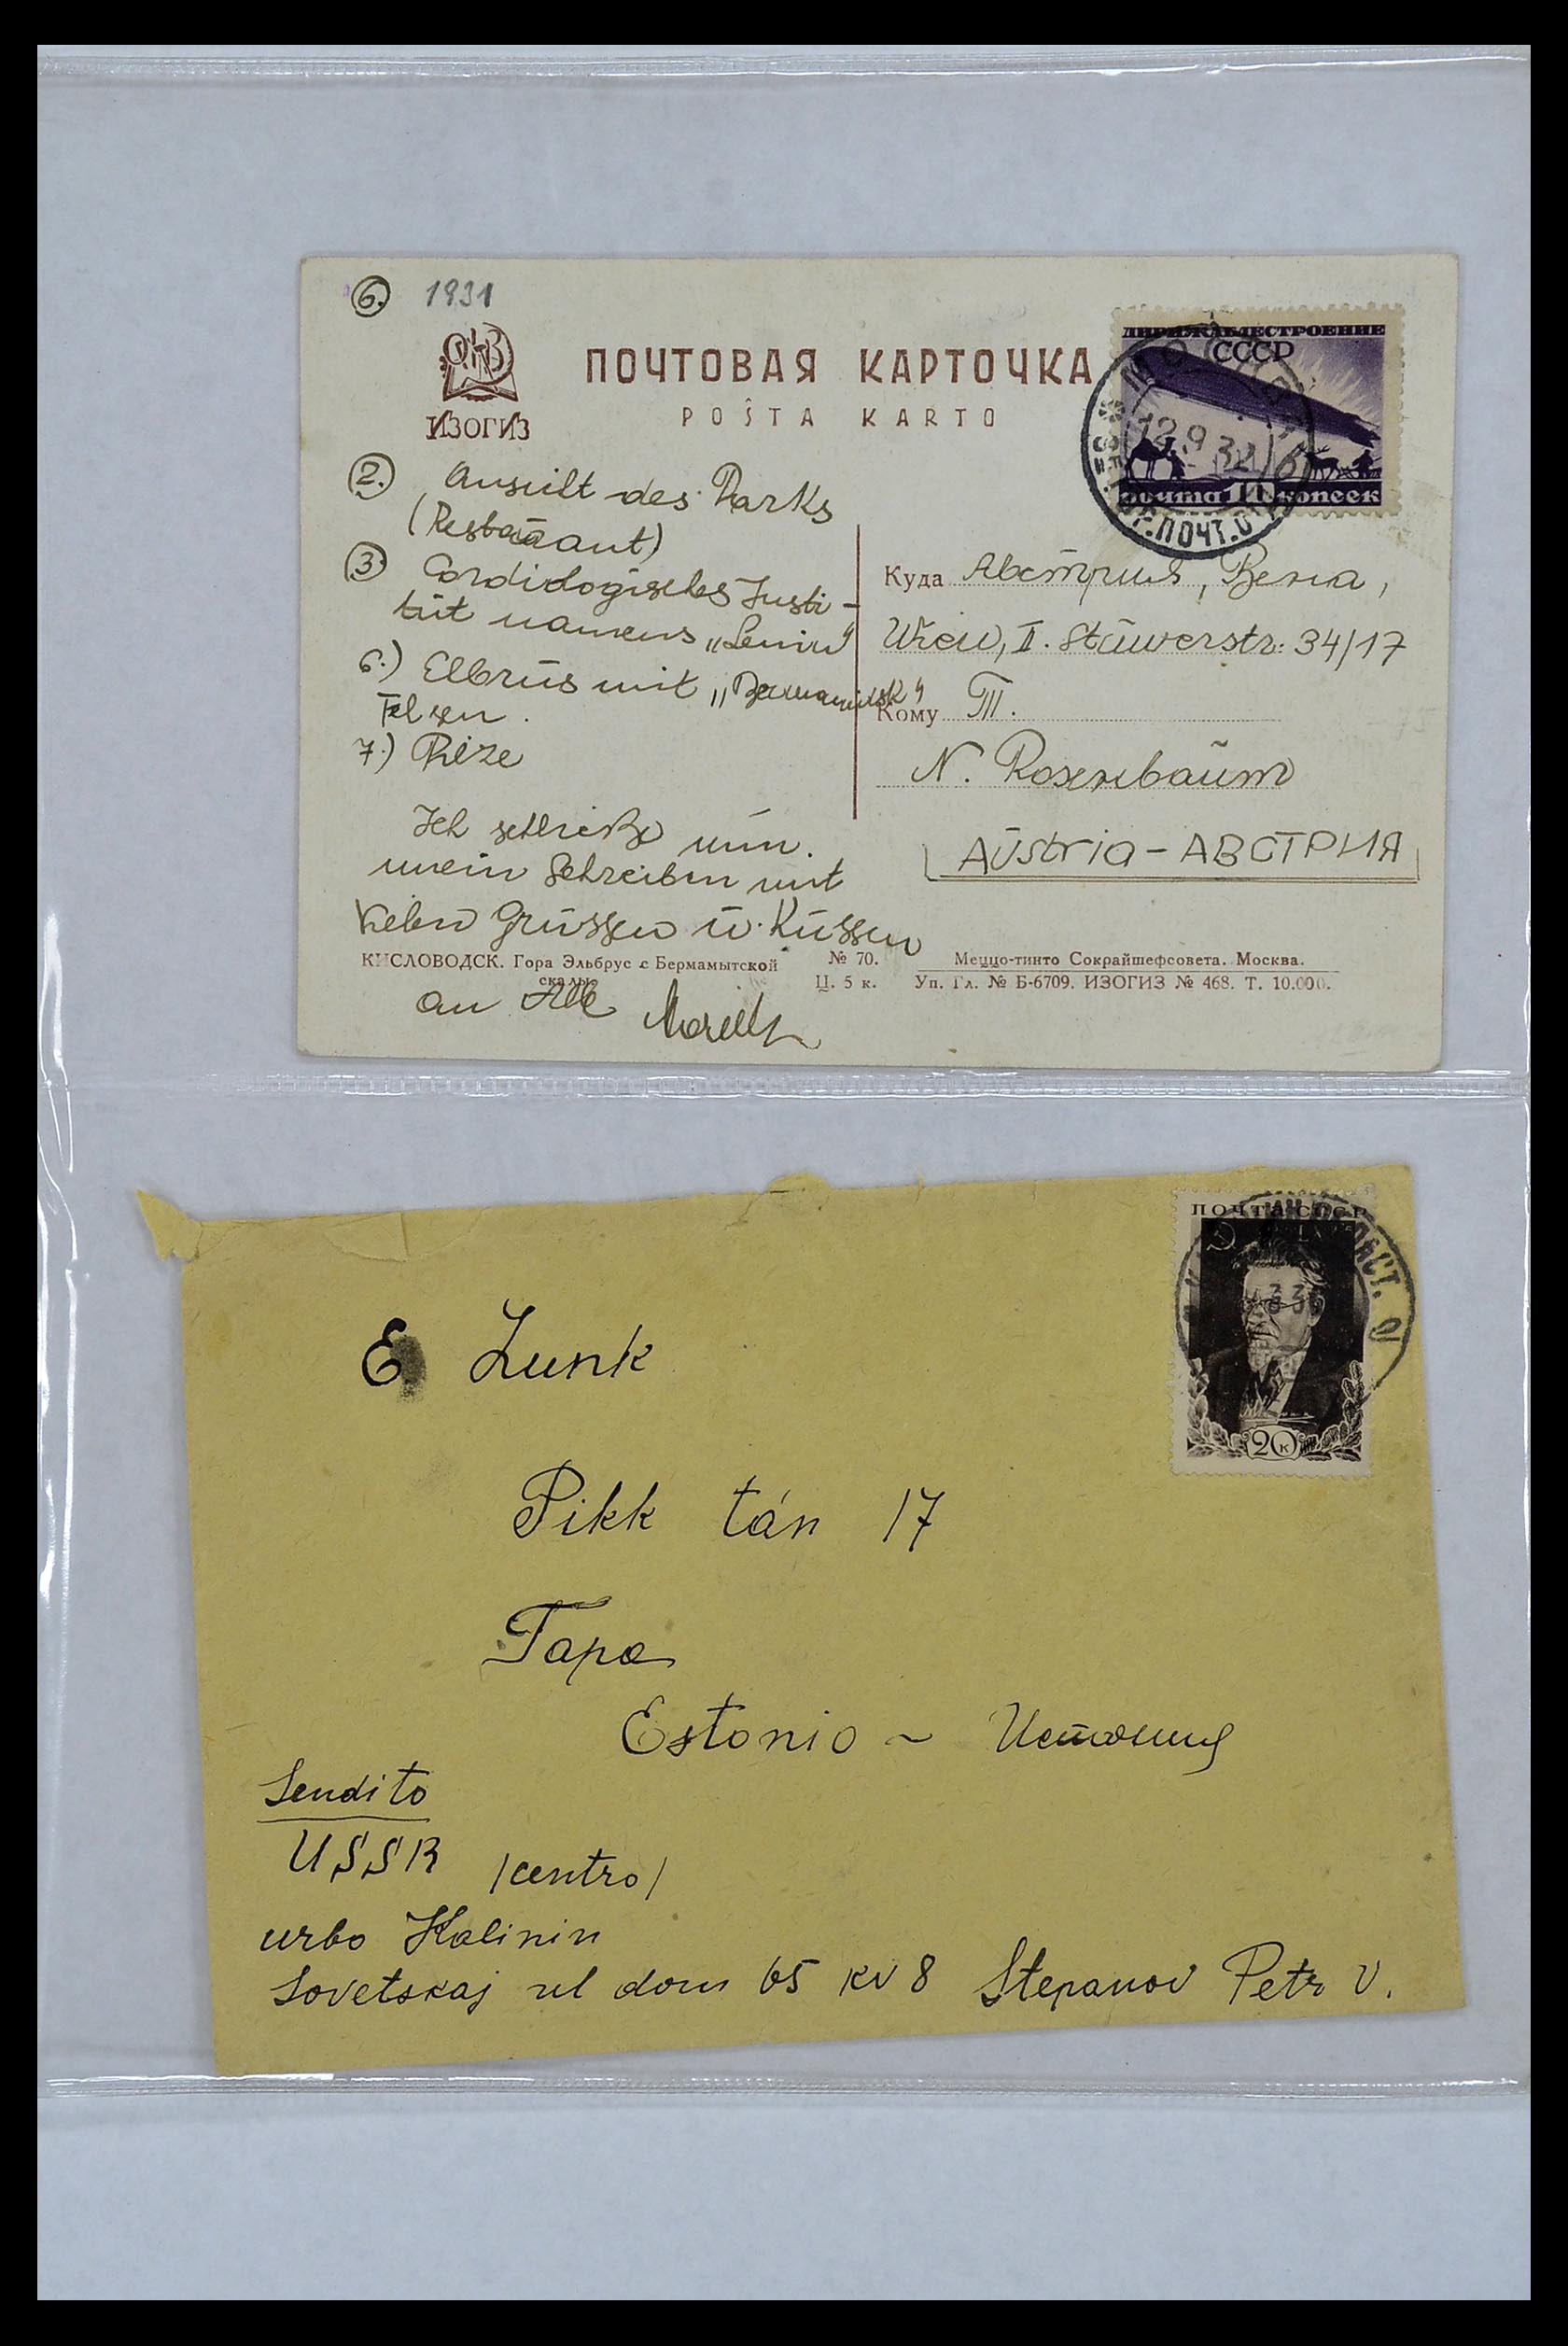 6. 1931
ИЗОГИЗ
ПОЧТОВАЯ КАРТОЧКА
POŜTA KARTO
ДИРИЖАБЛЕСТРОЕНИЕ
СССР
12 9 32
почта коп­еек
2. Ansicht des Parks
(Restaurant)
3 Cardiologisches Insti-
tut namens „Lenin"
6.) Elbrus mit
Felsen.
7.)
Ich schließe nun.
mein Schreiben mit
lieben Grüssen u. Küssen
an Alle
Куда Австрия, Вена,
Wien, II. Stuwerstr. 34/17
Кому
N. Rosenbaum
Austria - АВСТРИЯ
КИСЛОВОДСК. Гора Эльбрус с Бермамытской
скалы
№ 70.
Ц. 5 к.
Меццо-тинто Сокрайшефсовета. Москва.
Уп. Гл. № Б-6709. ИЗОГИЗ № 468. Т. 10.000.
ПОЧТА СССР
20 к
E. Lunk
Pikk tän 17
Tapa
Estonio ~ Истония
Sendito
USSR /centro/
urbo Kalinin
Sovetskaj ul dom 65 kv 8 Stepanov Petr V.